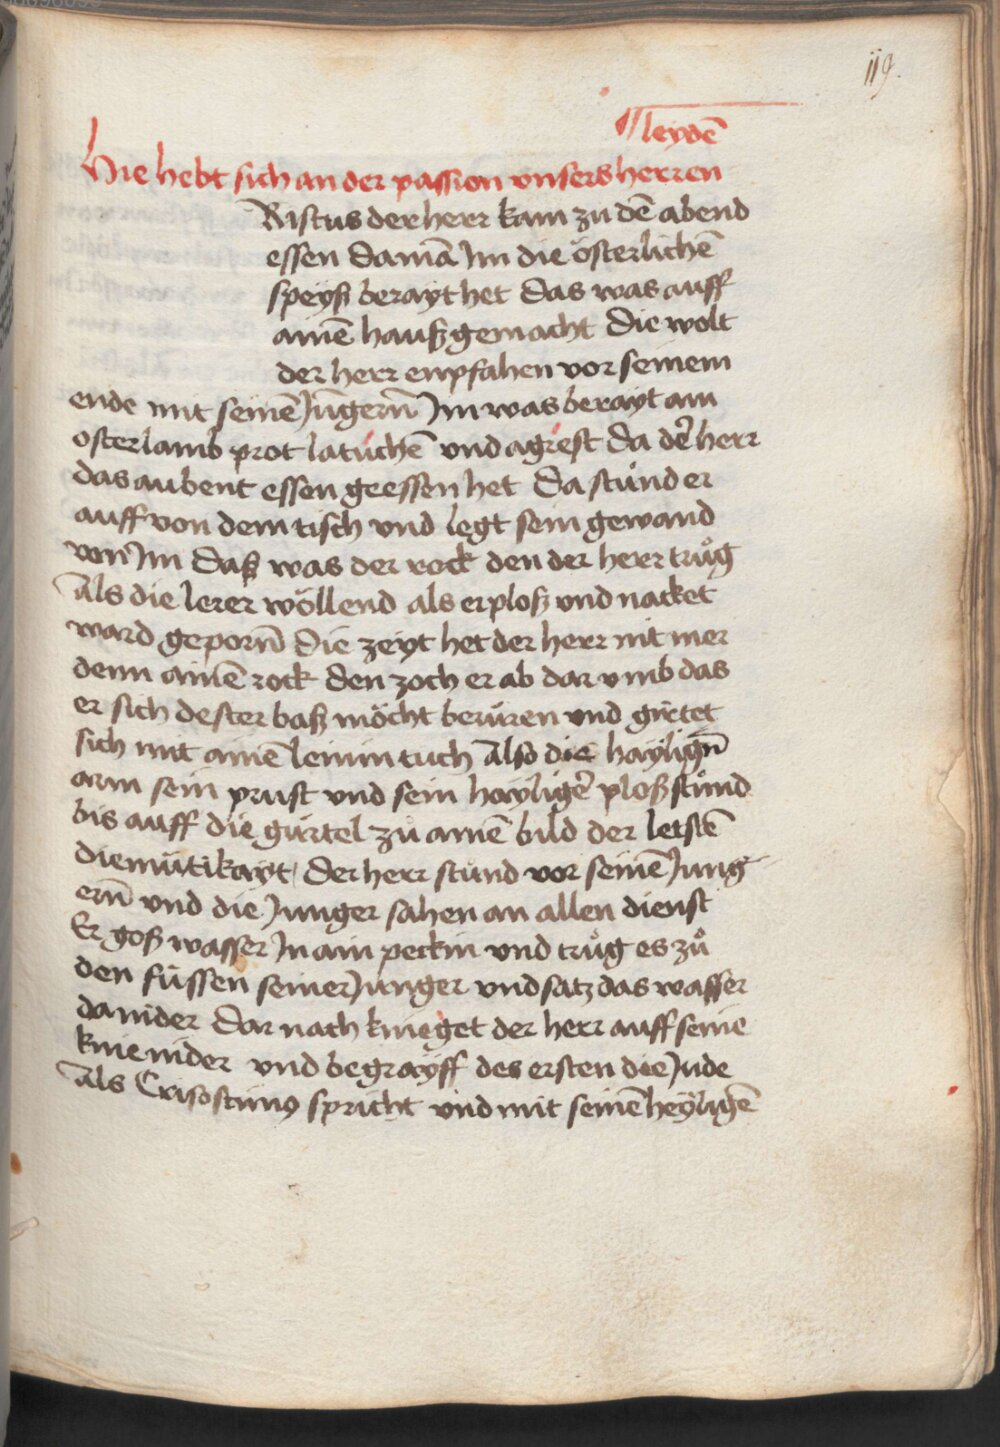 119.
¶ leydē
Hie hebt sich an der passion vnsers herren
Ristus der herr kam zu dē abend
essen da mā Im die österlichē
speyß berayt het Das was auff
ainē hauß gemacht Die wolt
der herr empfahen vor seinem
ende mit seinē Jūgerñ Im was berayt am
osterlamb prot latuchē vnd agrest Da der herr
das aubent essen geessen het Da stůnd er
auff von dem tisch vnd legt sein gewand
von Im Daß was der rock den der herr trůg
Als die lerer wöllend als er ploß vnd nacket
ward geporñ Die zeyt het der herr nit mer
denn ainē rock Den zoch er ab dar vmb das
er sich dester baß möcht berüren vnd gürtet
sich mit ainē leinin tuch Also die hayligñ
arm sein prust vnd sein hayliger ploß stůnd
bis auff die gürtel zů ainē bild der letstē
diemütikayt Der herr stůnd vor seinē Jung
erñ vnd die Junger sahen an allen dienst
Er goß wasser In ain peckin vnd trůg es zů
den füssen seiner Junger vnd satz das wasser
da nider Dar nach knieget der herr auff seine
knie nider vnd begrayff des ersten die Jude
Als Crisostimꝰ spricht vnd mit seinē heyligē